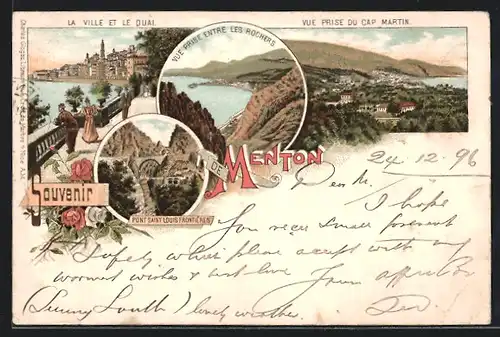 LA VILLE ET LE QUAI.
VUE PRISE DU CAP MARTIN.
VUE PRISE ENTRE LES ROCHERS
Souvenir
DE
MENTON
PONT SAINT LOUIS FRONTIÈRE
24.12.96
I hope
you small present
safely which please accept with my
warmest wishes & best love. Your
(Sunny South) lovely weather.